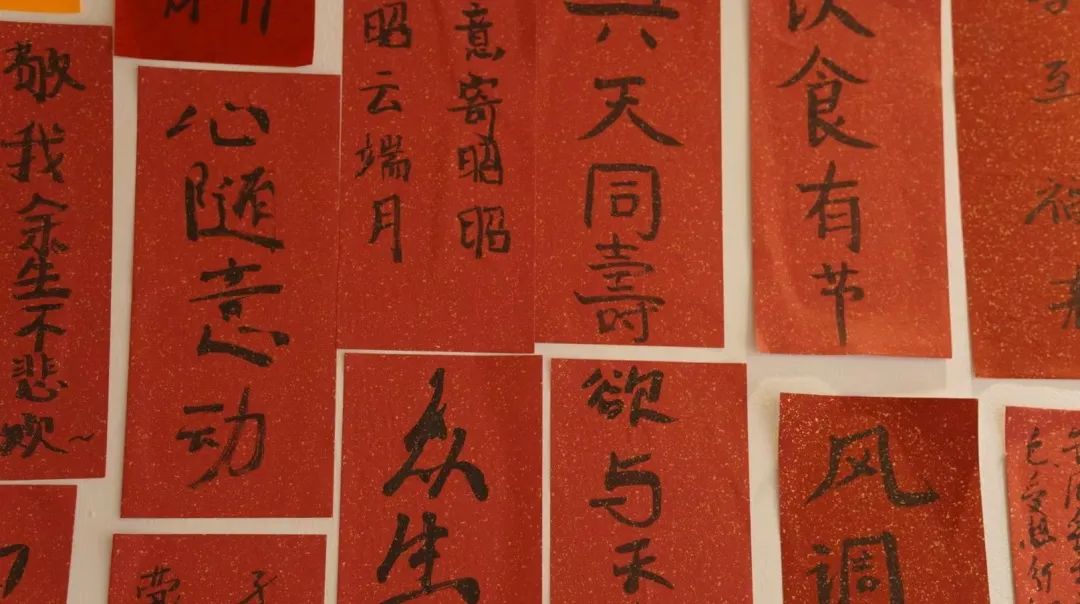 敬我余生不悲欢~
心随意动
意寄昭昭
昭云端月
天同壽
饮食有节
至福来
众生
欲与天
风调